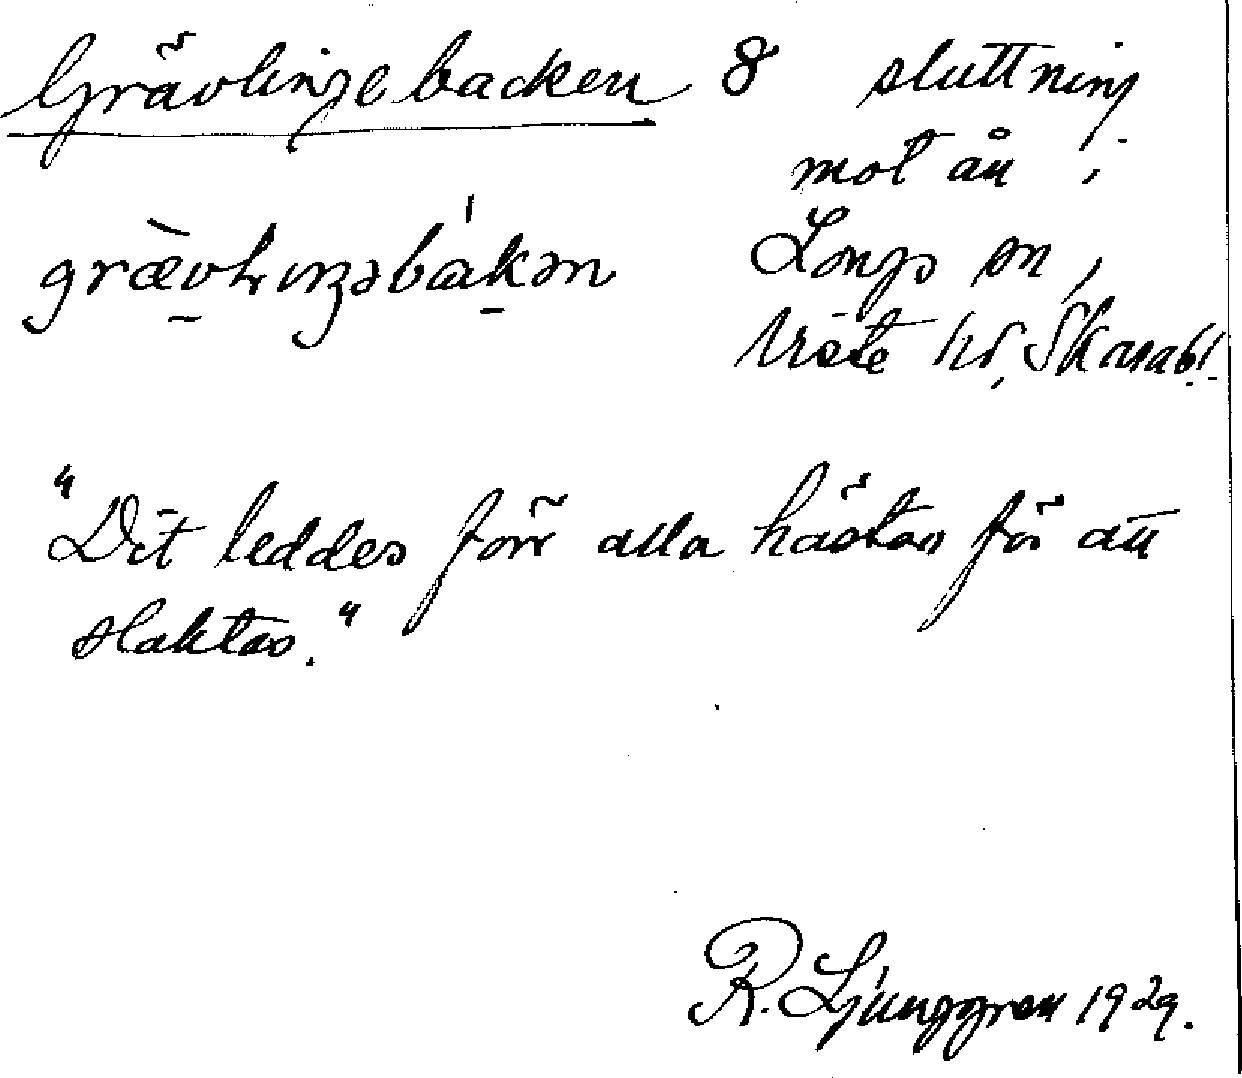 Grävlingebacken 8 sluttning
mot ån i
Longs sn,
Viste hd, Skarab.l.
grævlıŋəbakən
"Dit leddes förr alla hästar för att
slaktas."
R. Ljunggren 1929.